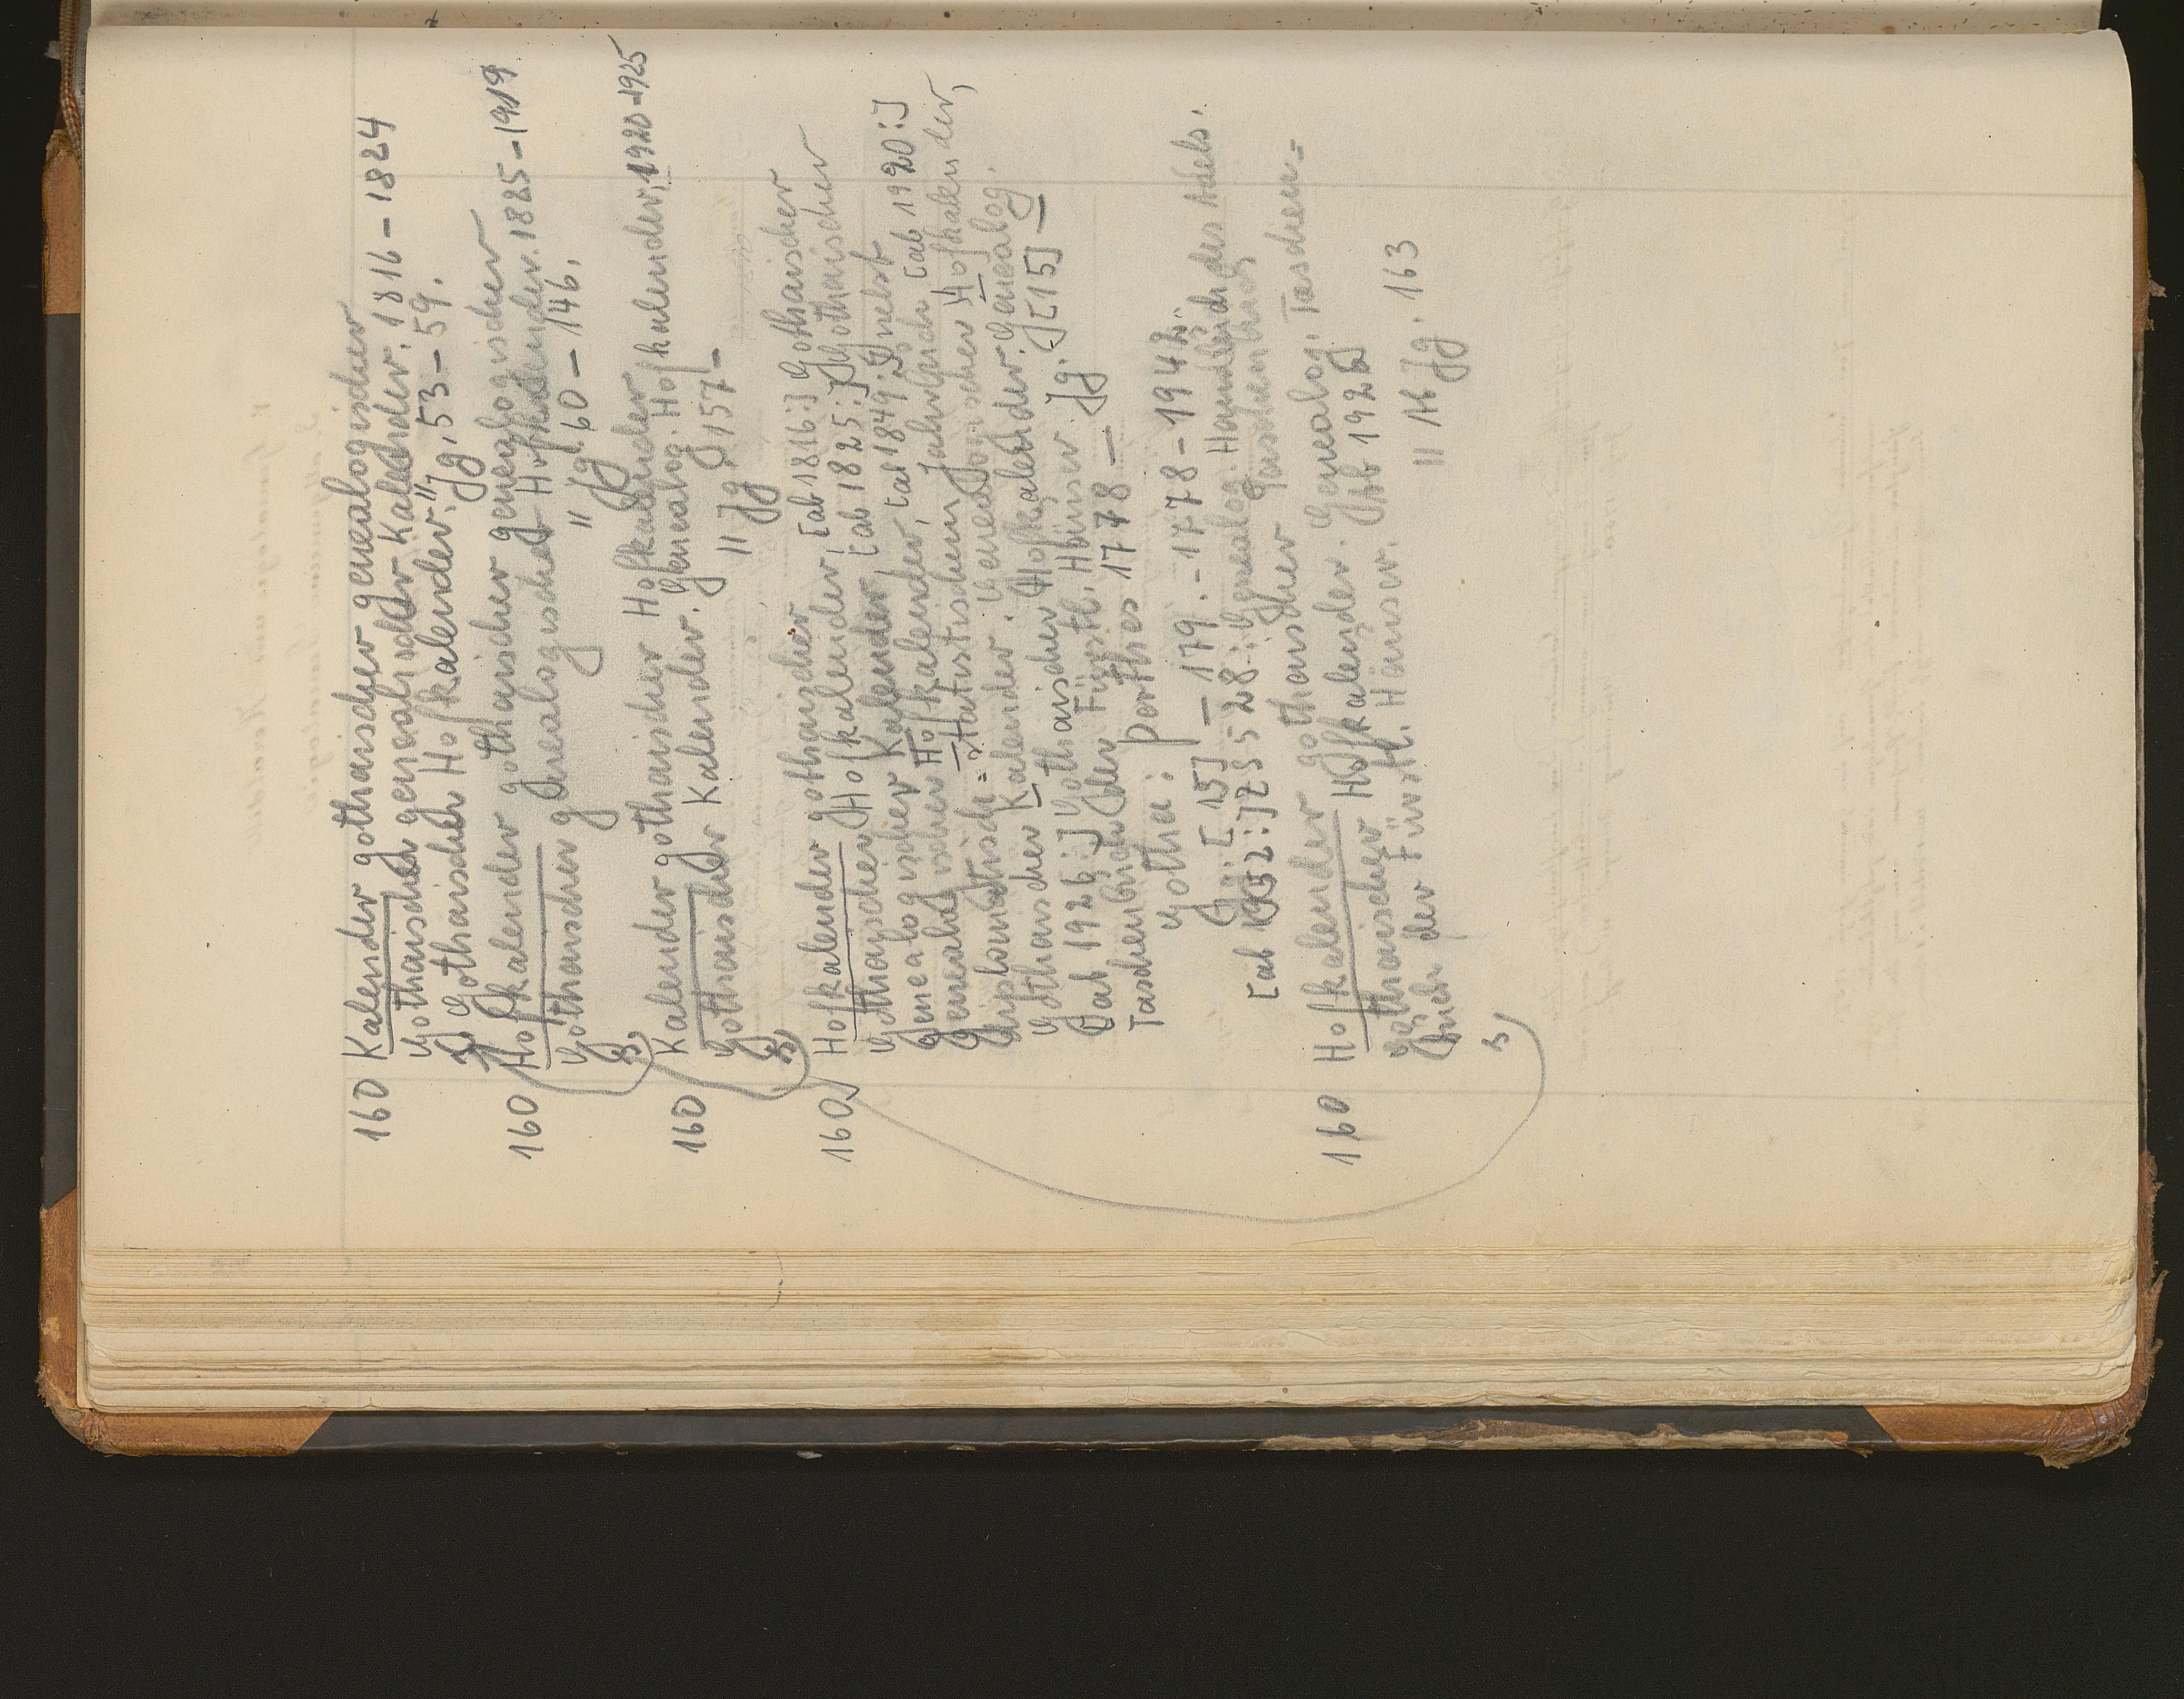 160 Kalender gothaischer genealogischer
Gothaischer genealischer Kalender. 1816 – 1824
Gothaischer Hofkalender. " Jg. 53 – 59.
160 Hofkalender gothaischer genealogischer
Gothaischer genealogischer Hofkalender. 1825 – 1919
" Jg. 60 – 146.
160 Kalender gothaischer Hofkalender
Gothaischer Kalender. Genealog. Hofkalender, 1920-1925
" Jg. 157 –
160 Hofkalender gothaischer
Gothaischer Hofkalender, [ab 1816:] Gothaischer
Genealogischer Kalender, [ab 1825:] Gothaischer
Genealogischer Hofkalender, [ab 1849:] nebst
diplomatisch=statistischem Jahrbuch [ab 1920:]
Gothaischer Kalender. Genealogischer Hofkalender,
[ab 1926:] Gothaischer Hofkalender. Genealog.
Taschenbuch der Fürstl. Häuser. Jg. [15] –
Gotha: Perthes 1778 –
Jg. [15] – 179. – 1778 – 1942.
[ab 1952:] Z S 528: Genealog. Handbuch des Adels.
160 Hofkalender gothaischer
Gothaischer Hofkalender. Genealog. Taschen=
buch der Fürstl. Häuser. [Ab 1926]
" Ab Jg. 163